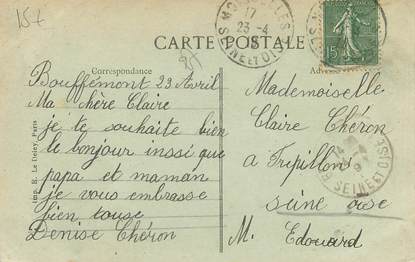 15t
CARTE POSTALE
Correspondance
Bouffémont 23 Avril
Ma chère Claire
je te souhaite bien
le bonjour inssi que
papa et maman
je vous embrasse
bien touse
Denise Chéron
Imp. E. Le Deley, Paris
17
23-4
SEINE ET OISE
15
Mademoiselle
Claire Chéron
a Fripillons
seine oise
M. Edouard
SEINE ET OISE